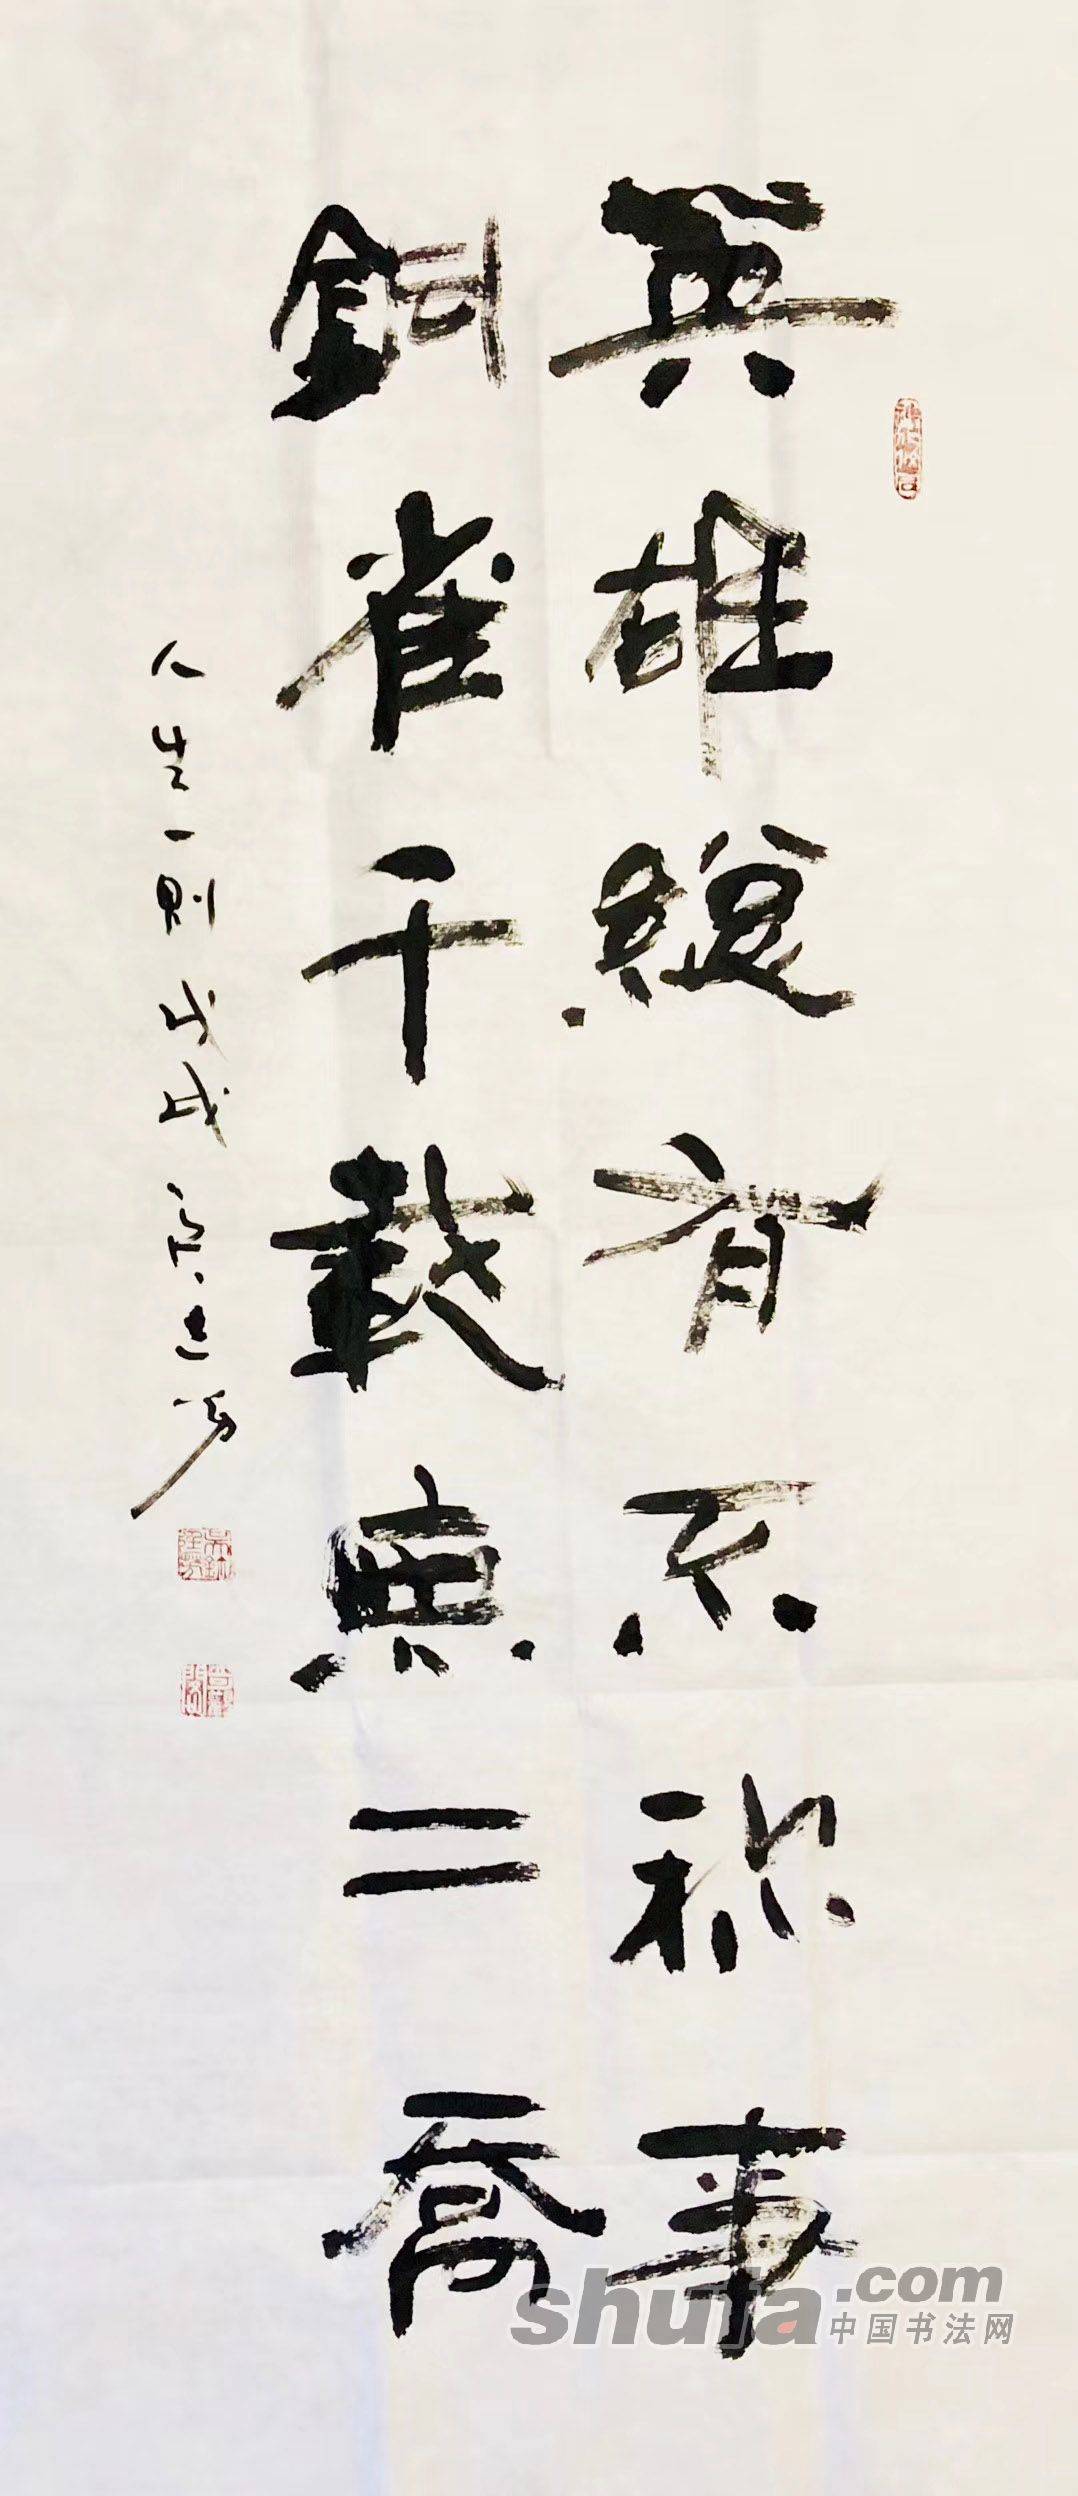 英雄總有不称事
銅雀千載典二喬
人生一則 戊戌
shufa.com
中国书法网